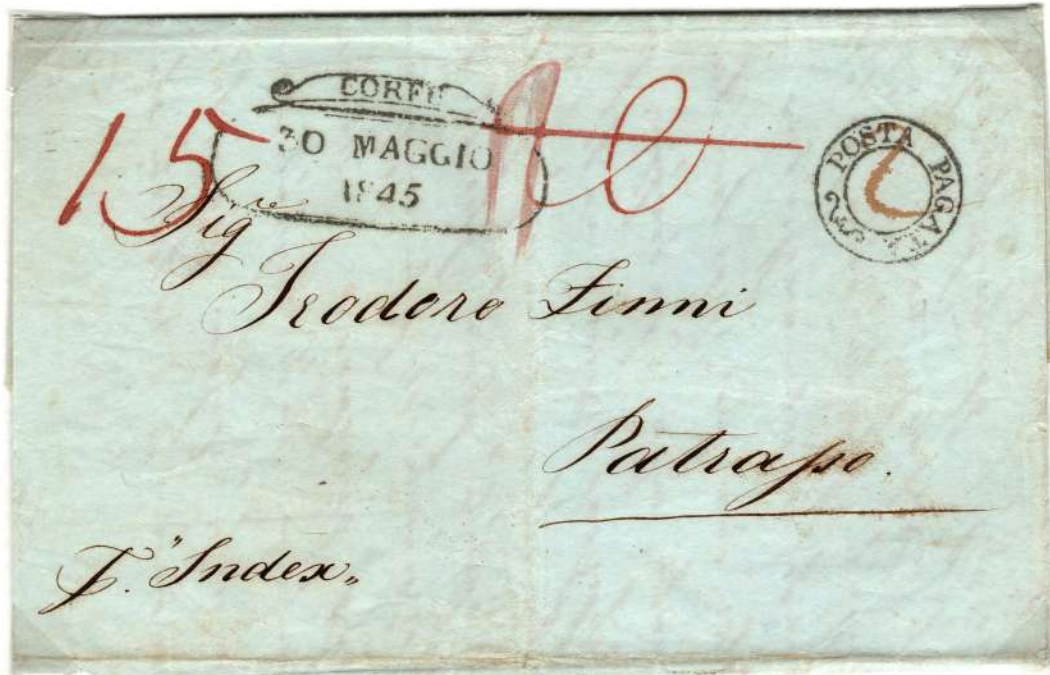 CORFU
30 MAGGIO
1845
15
POSTA PAGATA
Sig.re
Teodoro Zinni
Patrasso.
P. "Index"